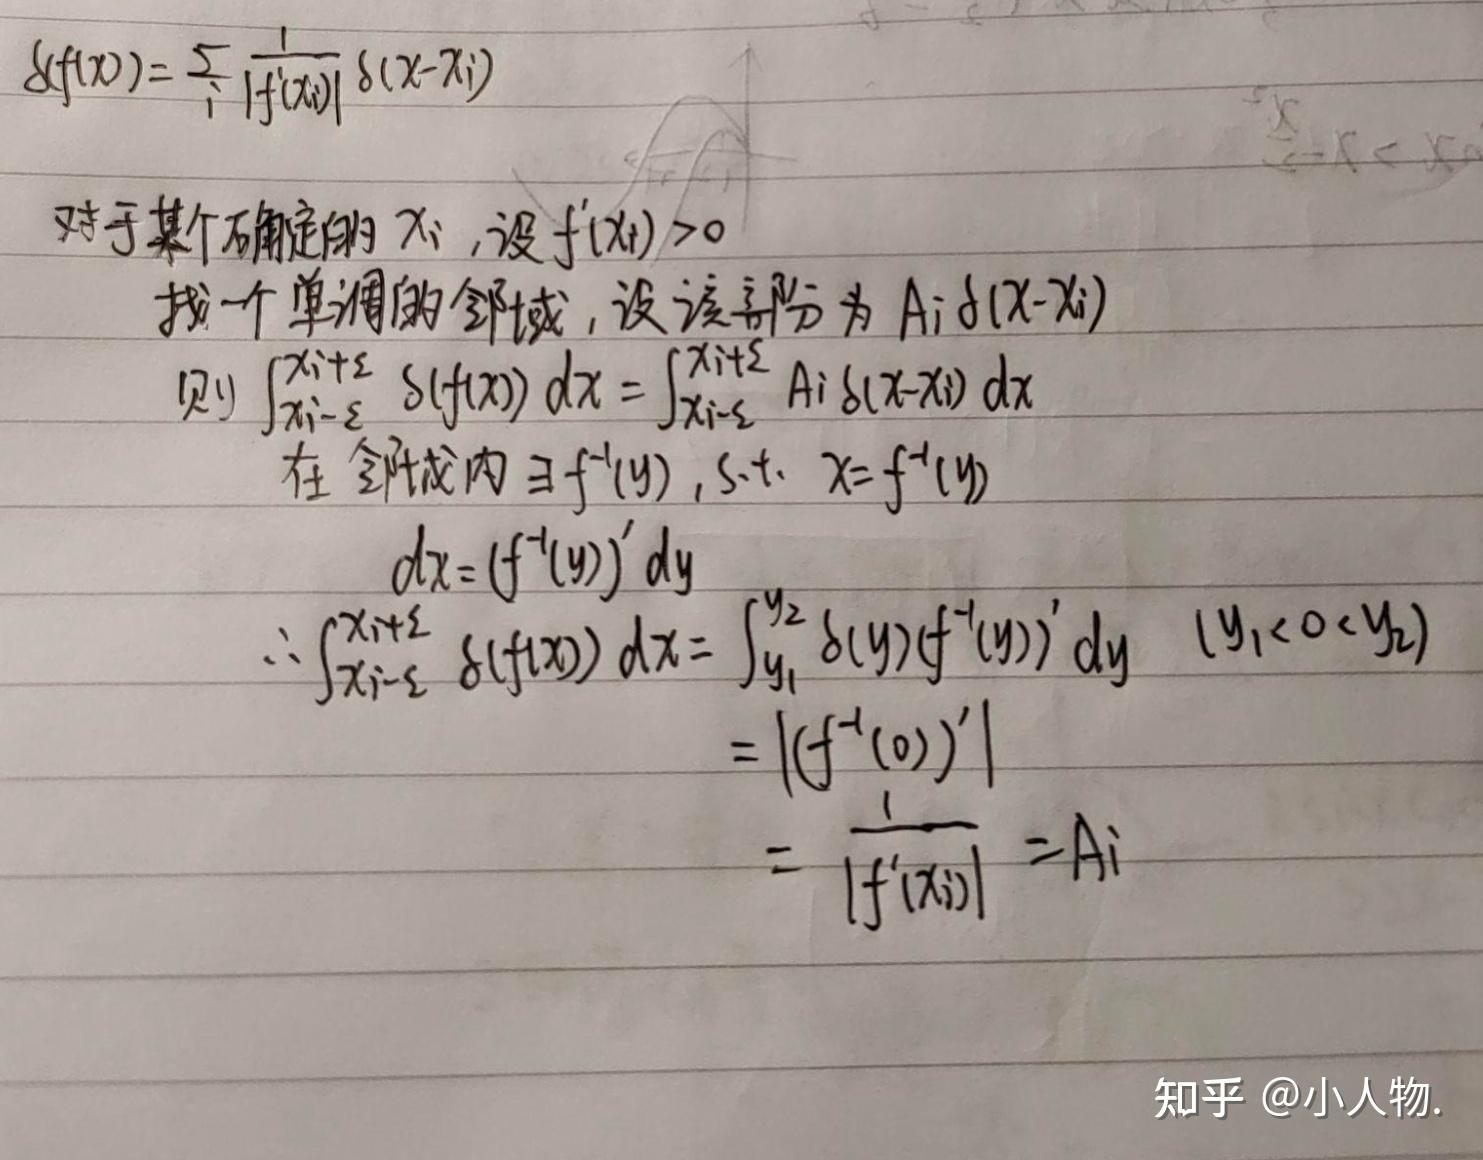 δ(f(x)) = Σ_i 1/|f'(x_i)| δ(x-x_i)
对于某个确定的 x_i ,设 f'(x_i) >0
找一个单调的邻域,设该部分为 A_i δ(x-x_i)
则 ∫_{x_i-ε}^{x_i+ε} δ(f(x)) dx = ∫_{x_i-ε}^{x_i+ε} A_i δ(x-x_i) dx
在邻域内 ∃ f⁻¹(y) , s.t. x= f⁻¹(y)
dx = (f⁻¹(y))' dy
∴ ∫_{x_i-ε}^{x_i+ε} δ(f(x)) dx = ∫_{y_1}^{y_2} δ(y)(f⁻¹(y))' dy (y_1<0<y_2)
= |(f⁻¹(0))'|
= 1/|f'(x_i)| = A_i
知乎 @小人物.